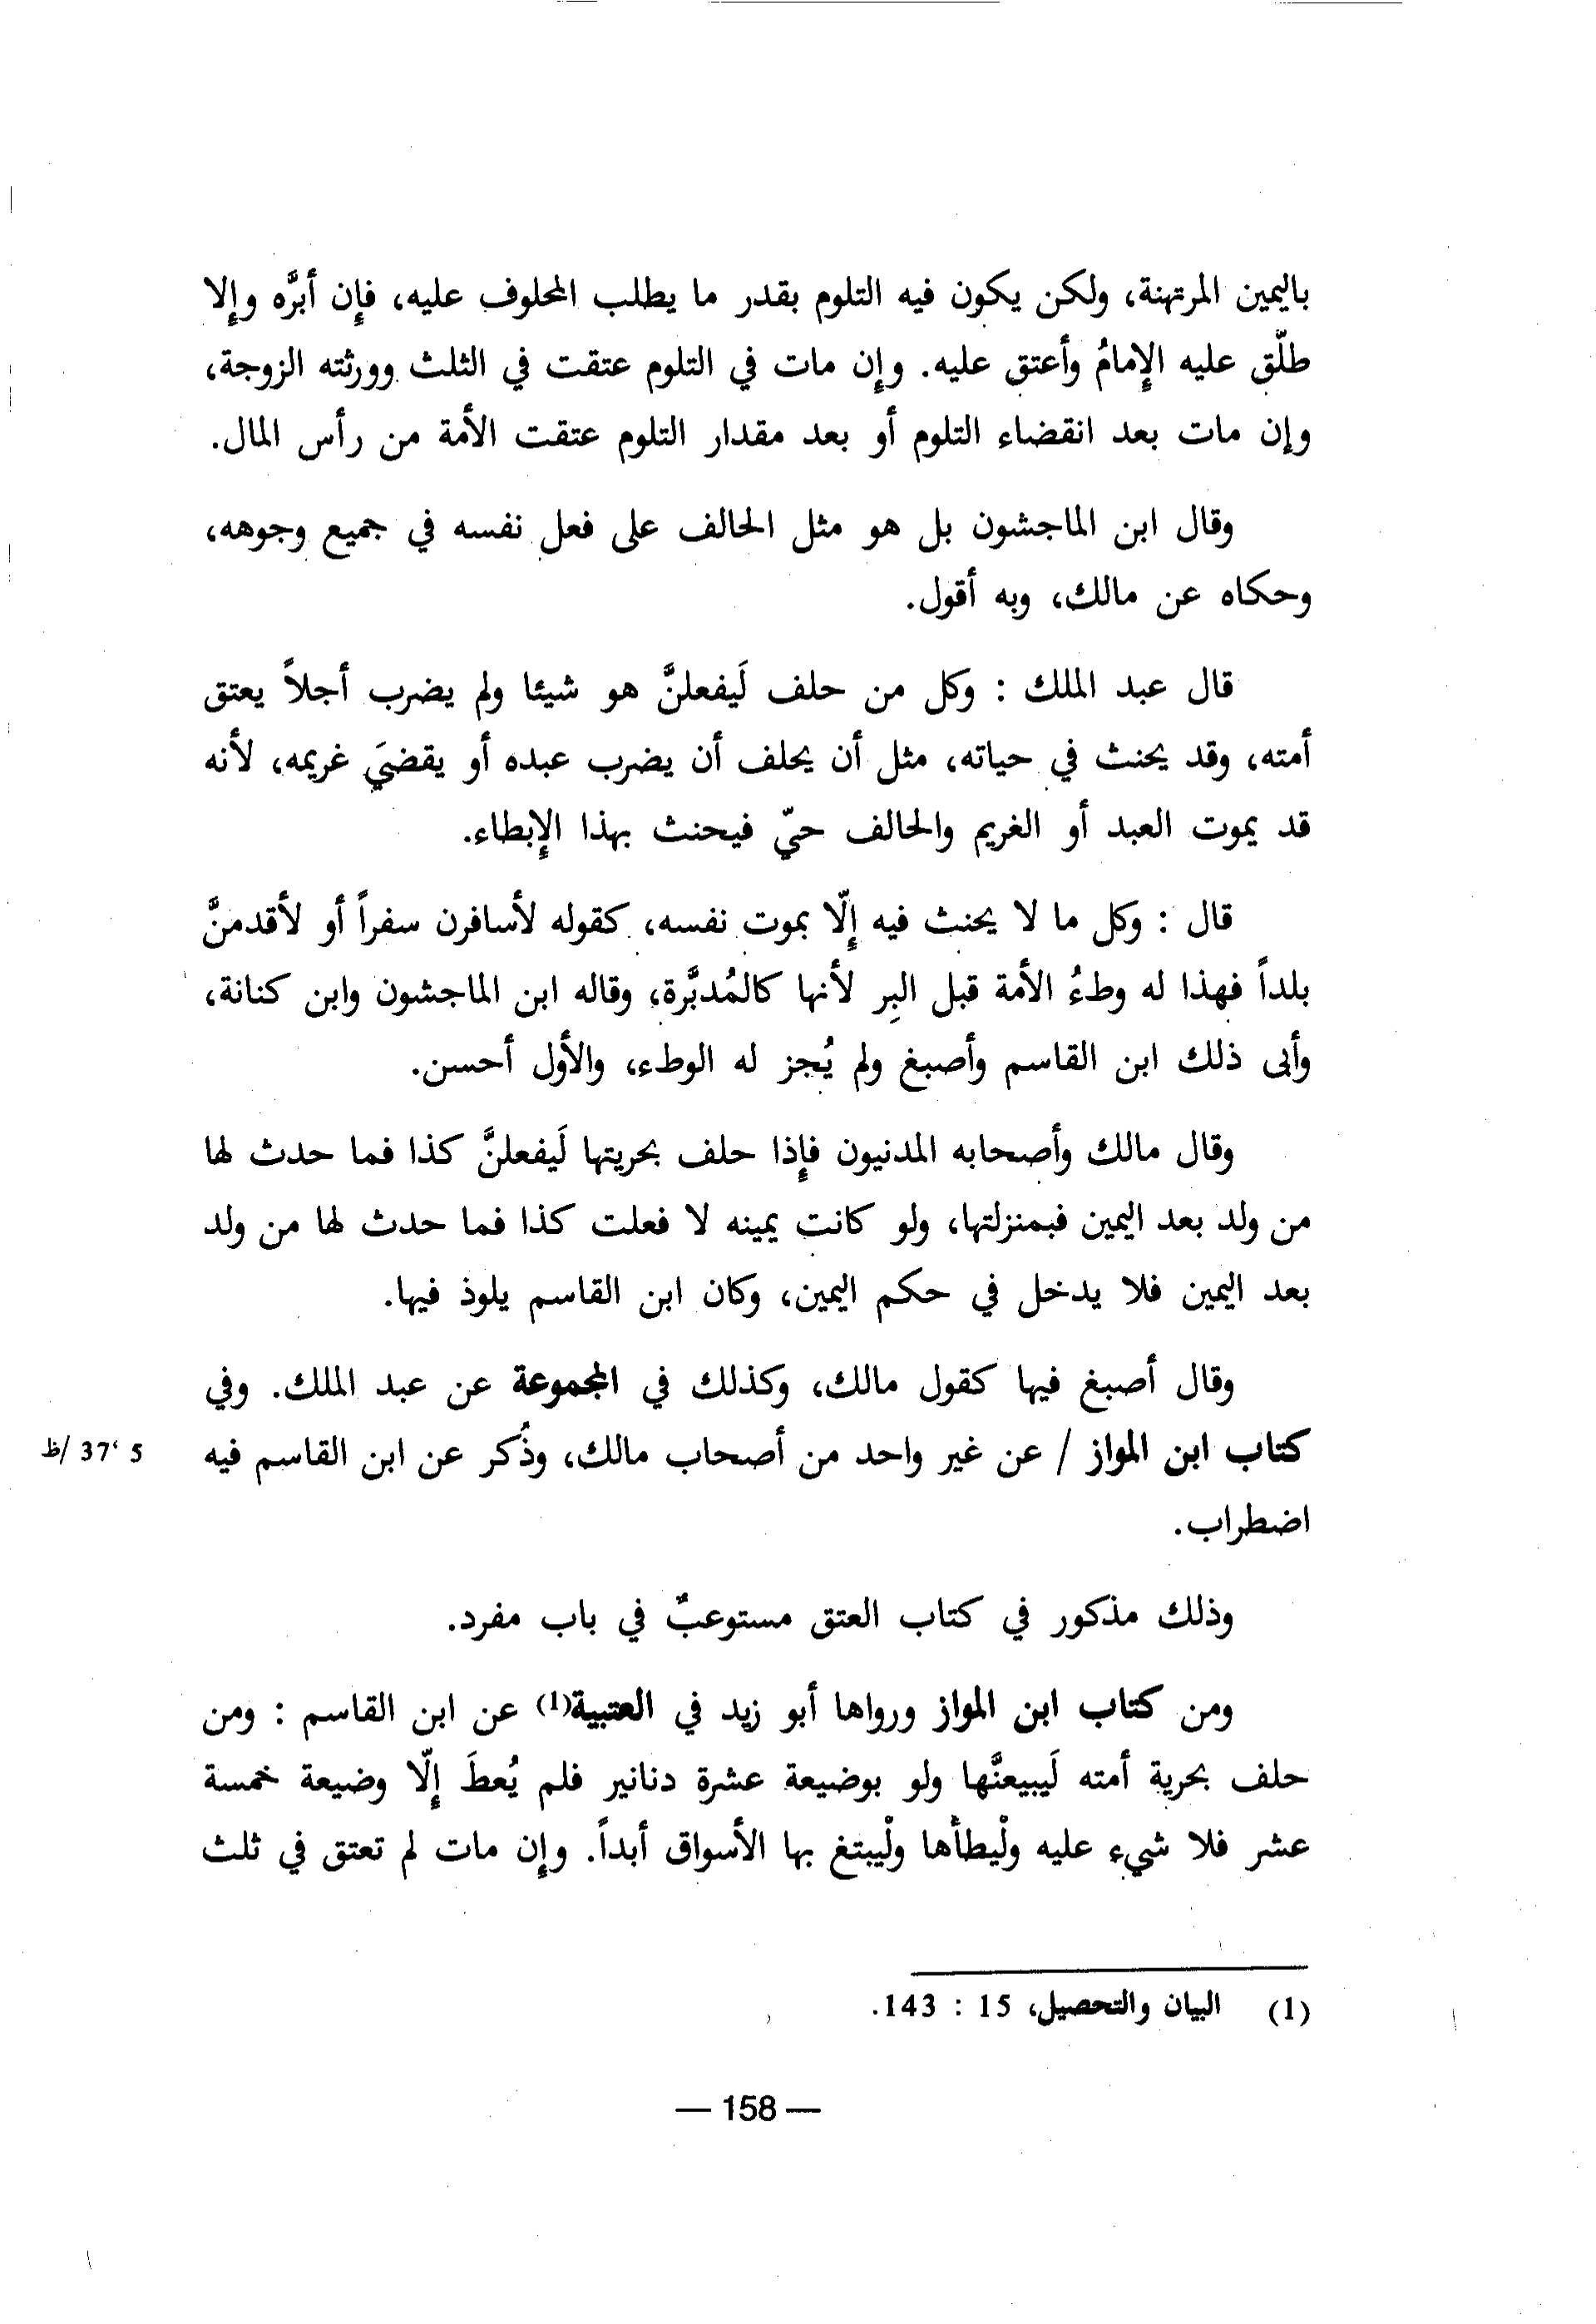 باليمين المرتهنة، ولكن يكون فيه التلوم بقدر ما يطلب المحلوف عليه، فإن أبرَّه وإلا
طلّق عليه الإمامُ وأعتق عليه. وإن مات في التلوم عتقت في الثلث وورثته الزوجة،
وإن مات بعد انقضاء التلوم أو بعد مقدار التلوم عتقت الأمة من رأس المال.
وقال ابن الماجشون بل هو مثل الحالف على فعل نفسه في جميع وجوهه،
وحكاه عن مالك، وبه أقول.
قال عبد الملك : وكل من حلف لَيفعلنَّ هو شيئا ولم يضرب أجلاً يعتق
أمته، وقد يحنث في حياته، مثل أن يحلف أن يضرب عبده أو يقضيَ غريمه، لأنه
قد يموت العبد أو الغريم والحالف حيّ فيحنث بهذا الإبطاء.
قال : وكل ما لا يحنث فيه إلّا بموت نفسه، كقوله لأسافرن سفراً أو لأقدمنَّ
بلداً فهذا له وطءُ الأمة قبل البِر لأنها كالمُدبَّرة، وقاله ابن الماجشون وابن كنانة،
وأبى ذلك ابن القاسم وأصبغ ولم يُجز له الوطء، والأول أحسن.
وقال مالك وأصحابه المدنيون فإذا حلف بحريتها لَيفعلنَّ كذا فما حدث لها
من ولد بعد اليمين فبمنزلتها، ولو كانت يمينه لا فعلت كذا فما حدث لها من ولد
بعد اليمين فلا يدخل في حكم اليمين، وكان ابن القاسم يلوذ فيها.
وقال أصبغ فيها كقول مالك، وكذلك في المجموعة عن عبد الملك. وفي
كتاب ابن المواز / عن غير واحد من أصحاب مالك، وذُكر عن ابن القاسم فيه
5 ،37 /ظ
اضطراب.
وذلك مذكور في كتاب العتق مستوعبٌ في باب مفرد.
ومن كتاب ابن المواز ورواها أبو زيد في العتبية(1) عن ابن القاسم : ومن
حلف بحرية أمته لَيبيعنَّها ولو بوضيعة عشرة دنانير فلم يُعطَ إلّا وضيعة خمسة
عشر فلا شيء عليه ولْيطأها ولْيبتغ بها الأسواق أبداً. وإن مات لم تعتق في ثلث
(1) البيان والتحصيل، 15 : 143.
— 158 —